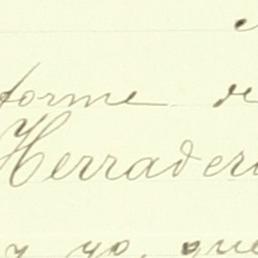 forme de
Herrader
y yo, que